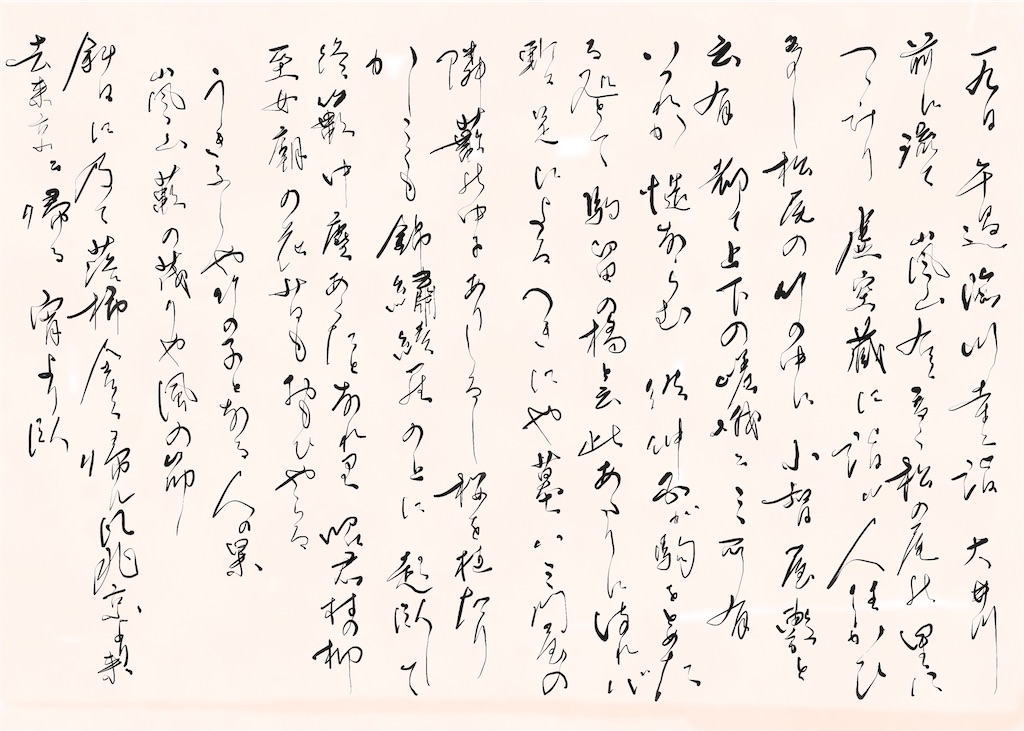 一九日 午過 臨川寺ニ詣 大井川
前に流て 嵐山右ニ高く 松の尾の里に
つゝけり 虚空蔵に詣ル人往かひ
多し 松尾の竹の中に 小督屋敷と
云有 都て上下の嵯峨ニ三所有
いつれか慥ならむ 彼仲国が駒をとめた
る処とて 駒留の橋と云 此あたりに侍れバ
暫是によるへきにや 墓ハ三間屋の
隣 藪の中にあり しるしに桜を植たり
かしこくも 錦繍綾羅の上に 起臥して
終藪中塵あくたとなれり 昭君村の柳
巫女廟の花の昔もおもひやらる
うきふしや竹の子となる人の果
嵐山藪の茂りや風の筋
斜日に及て落柿舎ニ帰ル 凡兆京より来
去来京ニ帰る 宵より臥